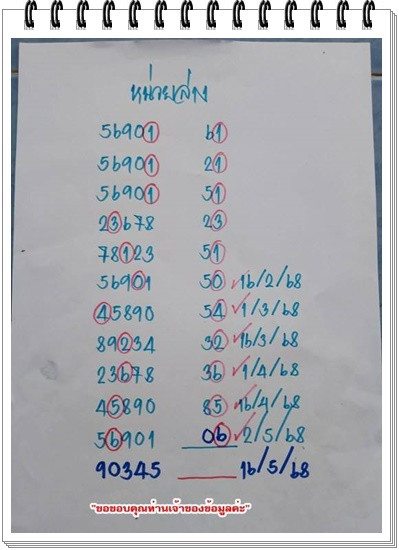 หน่วยล่าง
56901 61
56901 21
56901 51
23678 23
78123 51
56901 50 ✓16/2/68
45890 54 ✓1/3/68
89234 32 ✓16/3/68
23678 36 ✓1/4/68
45890 85 ✓16/4/68
56901 06 ✓2/5/68
90345 ___ 16/5/68
"ขอขอบคุณท่านเจ้าของข้อมูลค่ะ"